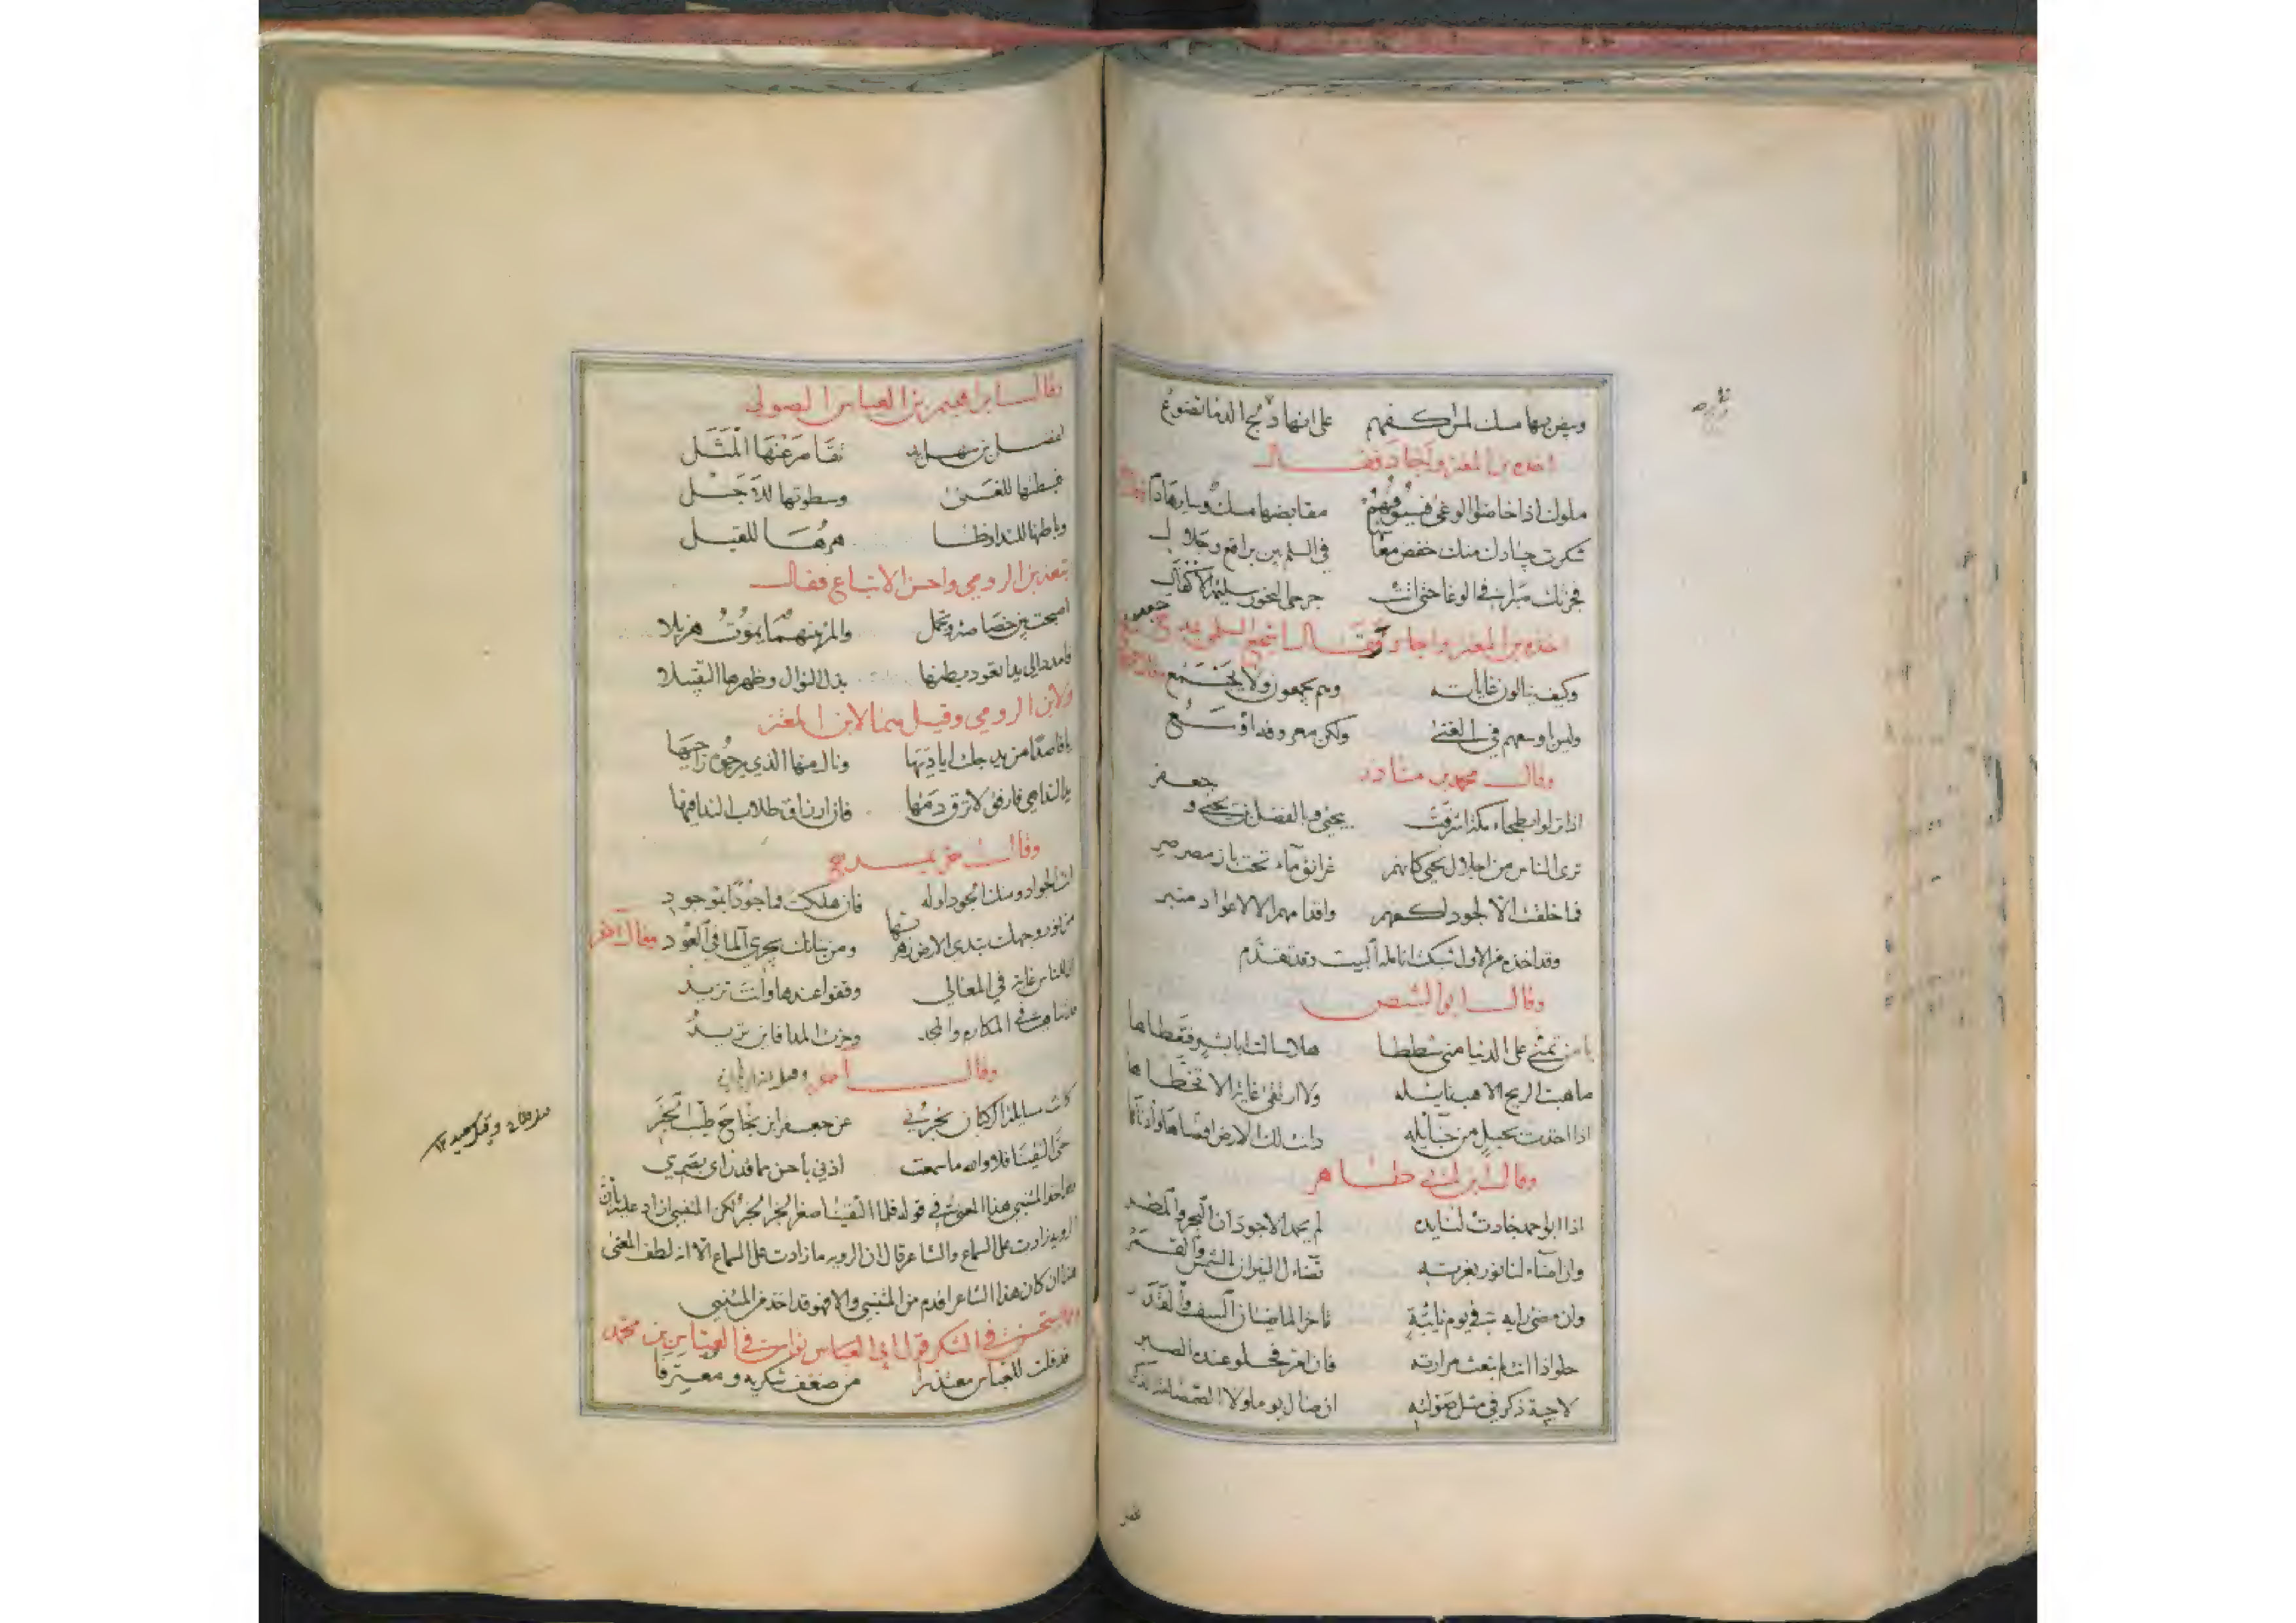 على انها ريح الدما تضوع
اخذه بن المعتز واجاد فقال
ملوك اذا خاضوا الوغى فسيوفهم مقابضها مسك وسايرها دم
شكرت جيادك منك خفض معا في السلم بين براقع وجلال
فجزتك صبرا في الوغا حتى انثنت جرحى النحور سليمة الاكفال
اخذه بن المعتز واجاد وقال اشجع السلمي جعفر
وكيف ينالون غاياته وهم يجمعون ولا يجمع
وليس اوسعهم في الغنى ولكن معروفه اوسع
وقال محمد بن مناذر
اذا نزلوا بطحاء مكة اشرقت بيحيى وبالفضل بن يحيى و جعفر
ترى الناس من اجلال يحيى كانهم غرانق ماء تحت باز مصرصر
فما خلقت الا لجود اكفهم واقدامهم الا لاعواد منبر
وقد اخذه من الاول البيت وقد تقدم
وقال ابو الشيص
يا من تمنى على الدنيا منى شططا هلا سالت ابا بشر فتعطاها
ما هبت الريح الا هب نايله ولا ارتقى غاية الا تخطاها
اذا اخذت بحبل من حبايله دانت لك الارض اقصاها وادناها
وقال ابن ابي طاهر
اذا ابو احمد جادت لنا يده لم يحمد الاجودان البحر والمطر
وان اضاء لنا نور بغرته تضاءل النيران الشمس والقمر
وان مضى رايه في يوم نايبة تاخر الماضيان السيف والقدر
حلو اذا انت لم تبعث مرارته فان امر فحلو عنده الصبر
لا حية ذكر في مثل صولته ان صال يوما ولا الصمصامة الذكر
وقال ابراهيم بن العباس الصولي
لفضل بن سهل يد تقاصر عنها المثل
فبسطتها للغنى وسطوتها للاجل
وباطنها للندا وظاهرها للقبل
تبعه بن الرومي واحسن الاتباع فقال
اصبحت بين خصاصة وتجمل والمرء بينهما يموت هزيلا
فامدد الي يدا تعود بطنها بذل النوال وظهرها التقبيلا
ولابن الرومي وقيل هما لابن المعتز
ونال منها الذي يرجوه راجيها
وقال اخر يمدح
انت الجواد ومنك الجود اوله فان هلكت فما جود بموجود
من نور وجهك تبدي الارض زهرتها ومن بنانك يجري الما في العود وقال اخر
للناس غاية في المعالي وقفوا عندها وانت تزيد
في المكارم والمجد وحزت المدا فاين تريد
وقال اخر
كانت مسايلة الركبان تخبرني عن جعفر ابن نجاح طيب الخبر
حتى التقينا فلا والله ما سمعت اذني باحسن مما قد راى بصري
اخذ المتنبي هذا المعنى في قوله فلما التقينا صغر الخبر الخبر لكن المتنبي زاد عليه بان
الروية زادت على السماع والشاعر قال ان الروية ما زادت على السماع الا انه لطف المعنى
هذا ان كان هذا الشاعر اقدم من المتنبي والا فهو قد اخذ من المتنبي
ومما يستحسن في الشكر قول ابي العباس نواس في العباس بن محمد
قد قلت للعباس معتذرا من ضعف شكريه ومعترفا